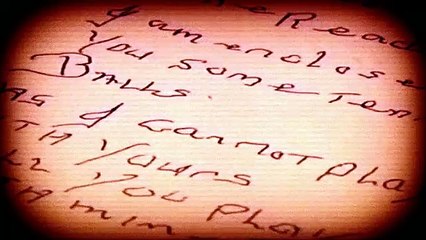 e Read
I am enclose
You some Ten
Balls.
as I cannot play
th Yours
ll You pla
h min